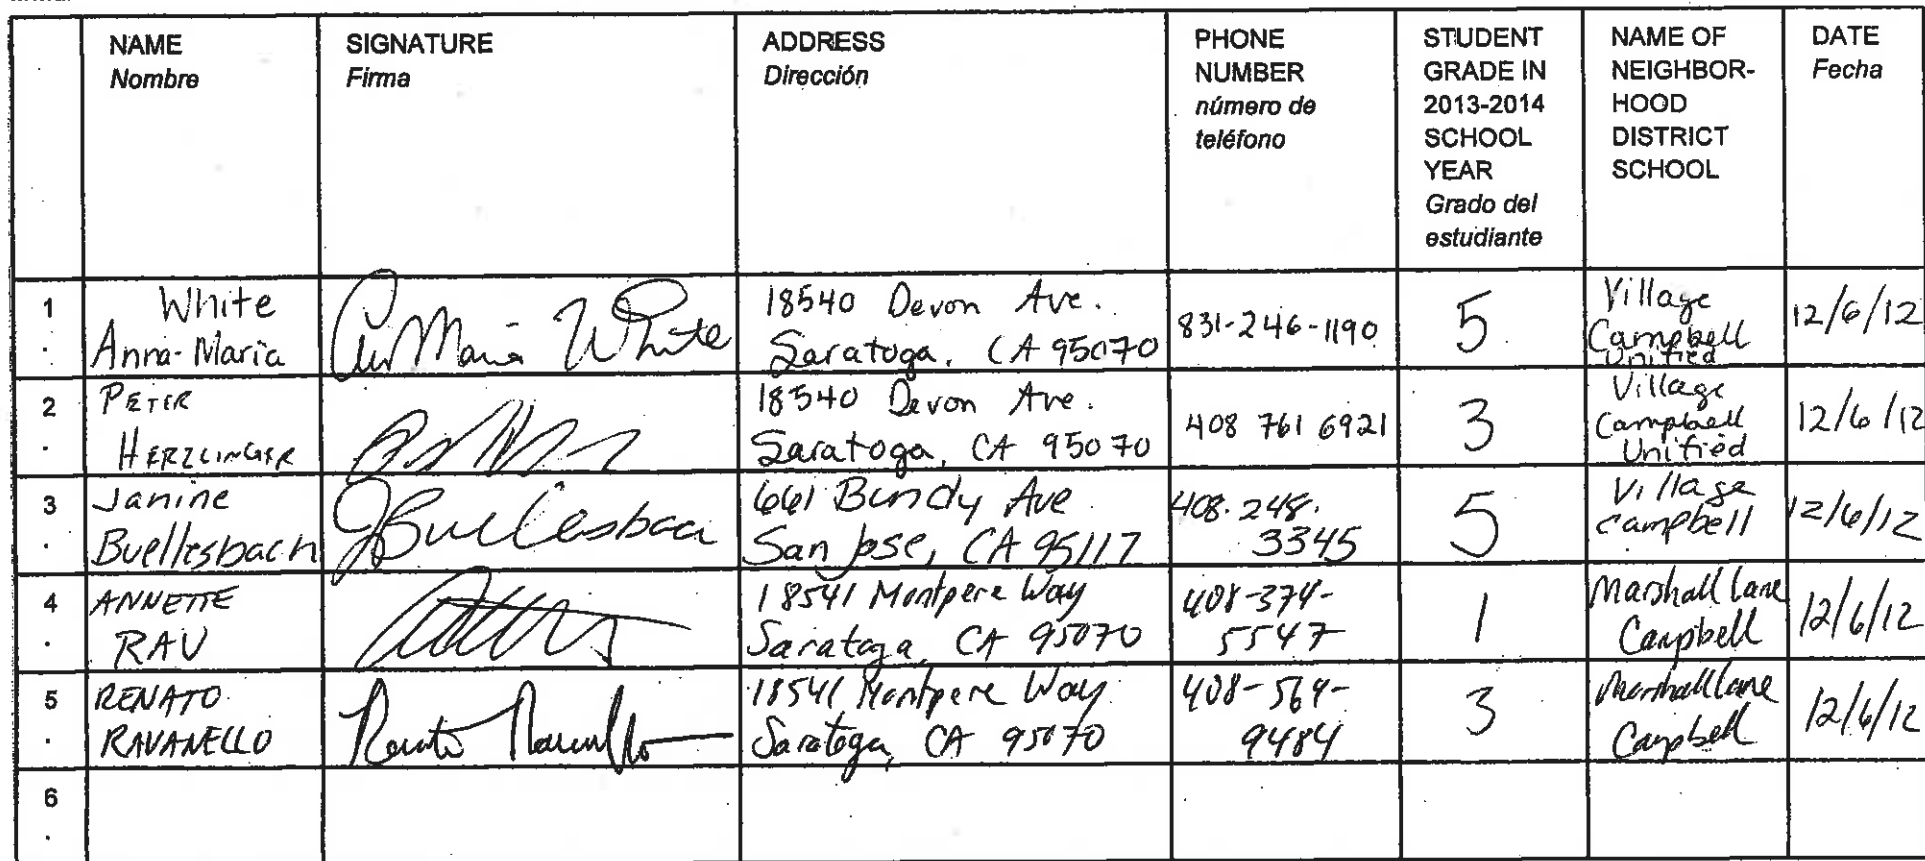 NAME
Nombre
SIGNATURE
Firma
ADDRESS
Dirección
PHONE
NUMBER
número de
teléfono
STUDENT
GRADE IN
2013-2014
SCHOOL
YEAR
Grado del
estudiante
NAME OF
NEIGHBOR-
HOOD
DISTRICT
SCHOOL
DATE
Fecha
1
.
White
Anna-Maria
Maria White
18540 Devon Ave.
Saratoga, CA 95070
831-246-1190
5
Village
Campbell
Unified
12/6/12
2
.
PETER
HERZLINGER
18540 Devon Ave.
Saratoga, CA 95070
408 761 6921
3
Village
Campbell
Unified
12/6/12
3
.
Janine
Buellesbach
JBuellesbac
661 Bundy Ave
San Jose, CA 95117
408.248.
3345
5
Village
Campbell
12/6/12
4
.
ANNETTE
RAV
18541 Montpere Way
Saratoga, CA 95070
408-374-
5547
1
Marshall Lane
Campbell
12/6/12
5
.
RENATO
RAVANELLO
Renato Ravanello
18541 Montpere Way
Saratoga, CA 95070
408-564-
9484
3
Marshall Lane
Campbell
12/6/12
6
.